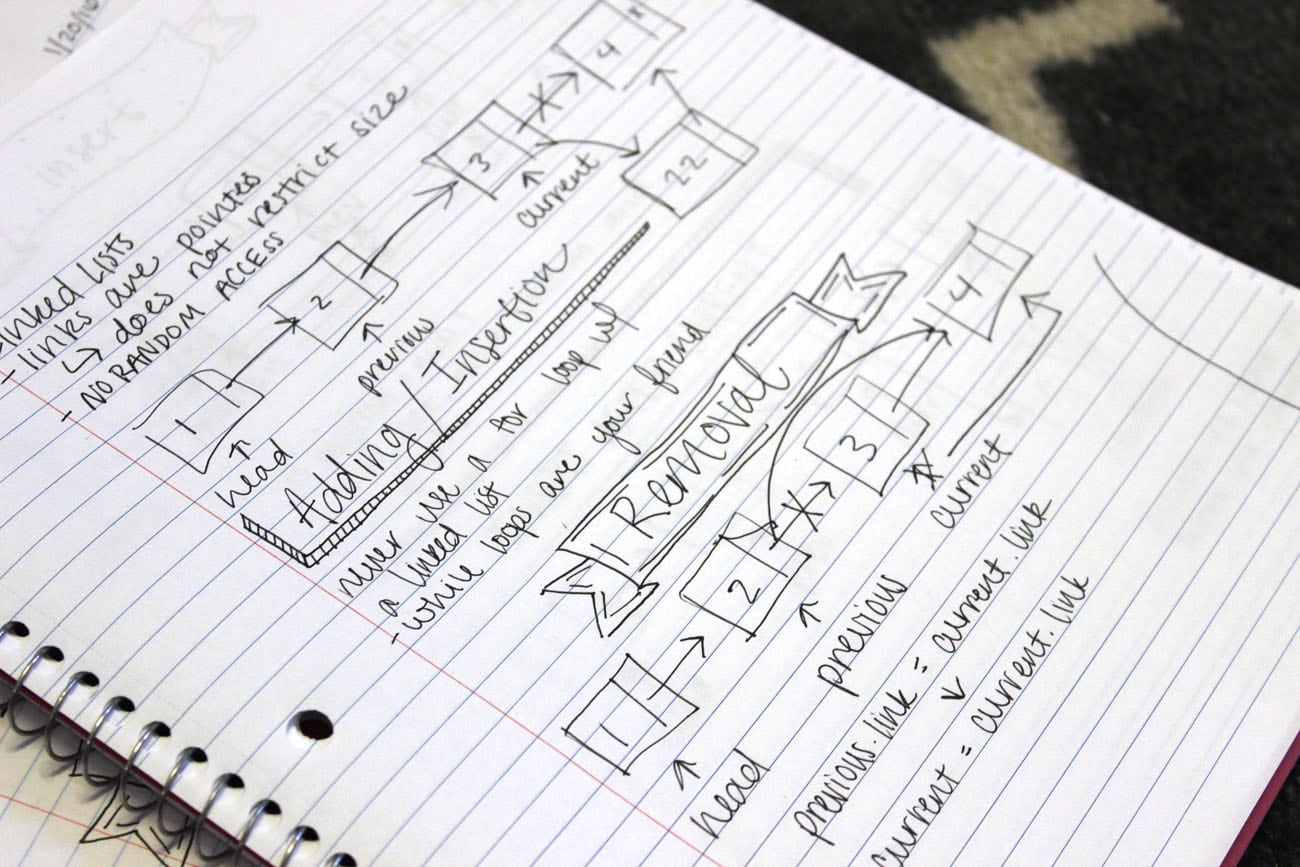 1/20/16
insert
Linked Lists
- links are pointers
↳ does not restrict size
- NO RANDOM ACCESS
1 2 3 4
22
head previous current
Adding / Insertion
never use a for loop w/
a linked list
- while loops are your friend
Removal
1 2 3 4
head previous current
previous.link = current.link
current = current.link